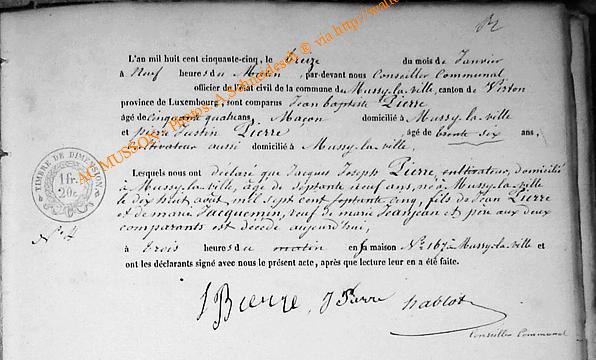 L'an mil huit cent cinquante-cinq, le treize du mois de Janvier
à Neuf heures du Matin, par-devant nous Conseiller Communal
officier de l'état civil de la commune de Mussy-la-ville, canton de Virton
province de Luxembourg, sont comparus Jean baptiste Pierre
âgé de Cinquante quatre ans, Maçon domicilié à Mussy-la-ville
et pierre Justin Pierre âgé de trente six ans,
Cultivateur aussi domicilié à Mussy-la-ville,
Lesquels nous ont déclaré que Jacques Joseph Pierre, cultivateur, domicilié
à Mussy-la-ville, âgé de Septante neuf ans, né à Mussy-la-ville
le dix huit août mil sept cent septante cinq, fils de Jean Pierre
et de marie Jacquemin, veuf de marie Jeanjean et père aux deux
comparants est décédé aujourd'hui,
à trois heures du matin en sa maison N° 167 à Mussy-la-ville et
ont les déclarants signé avec nous le présent acte, après que lecture leur en a été faite.
J Pierre
Conseiller Communal
TIMBRE DE DIMENSION
1 fr.
20 c.
AC MUSSON - Photos: A. Schneidesch © via http://